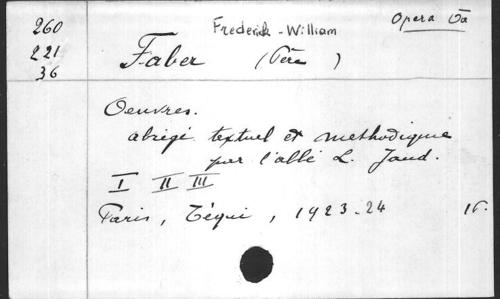 260
221
36
Frederick-William
Opera
Faber (Père)
Oeuvres.
abrégé textuel et méthodique
par l'abbé L. Jaud.
I II III
Paris, Téqui, 1923-24 16.